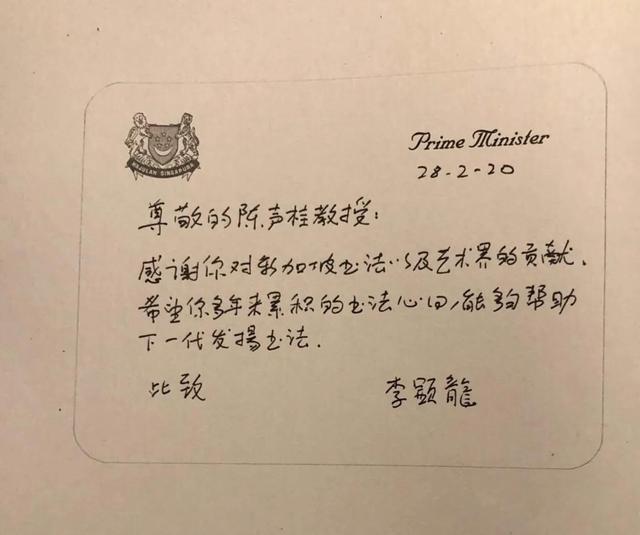 MAJULAH SINGAPURA
Prime Minister
28-2-20
尊敬的陈声桂教授:
感谢你对新加坡书法以及艺术界的贡献.
希望你多年来累积的书法心，能够帮助
下一代发扬书法.
此致 李顯龍